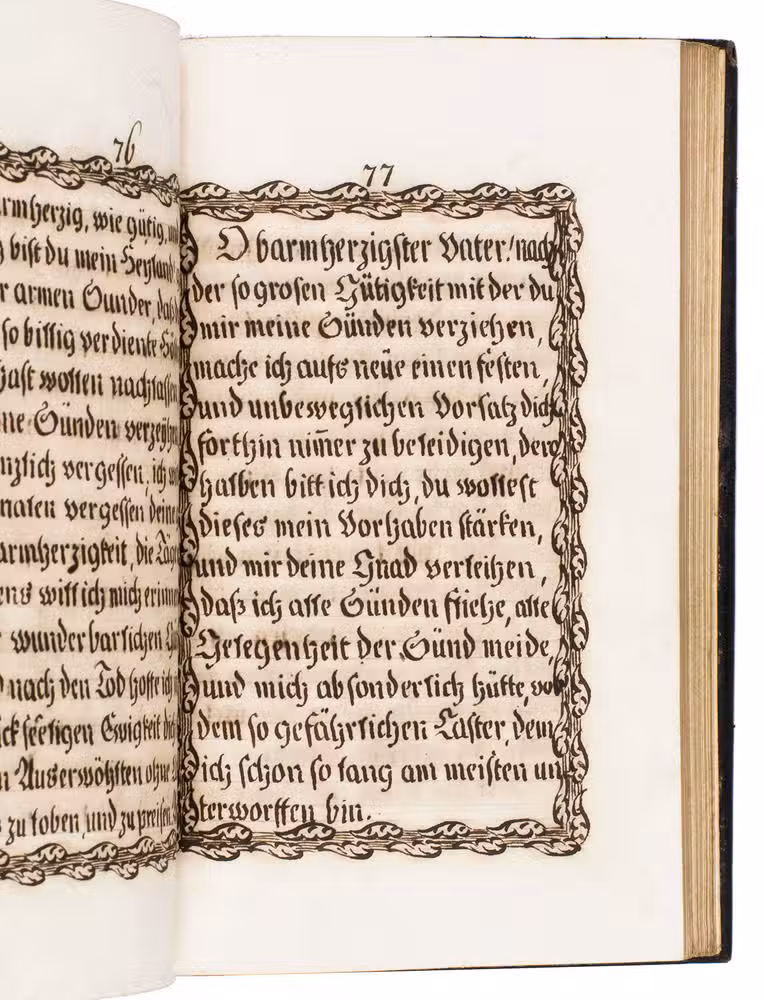 76
armherzig, wie gütig,
bist du mein Heyland
armen Sunder, daß
so billig verdiente
hast wollen nachlassen
Sünden verzeyhen
vergessen, ich
vergessen deine
armherzigkeit, die
will ich mich
wunderbarlichen
nach den Tod hoffe ich
seeligen Ewigkeit
Auserwöhlten ohne
zu loben und zu preisen.
77
O barmherzigster Vater! nach
der so grosen Gütigkeit mit der du
mir meine Sünden verziehen,
mache ich aufs neüe einen festen,
und unbeweglichen Vorsatz dich
forthin nim̄er zu beleidigen, dero
halben bitt ich dich, du wollest
dieses mein Vorhaben stärken,
und mir deine Gnad verleihen,
daß ich alle Sünden fliehe, alle
Gelegenheit der Sünd meide,
und mich absonderlich hütte, vor
dem so gefährlichen Laster, dem
ich schon so lang am meisten un
terworffen bin.